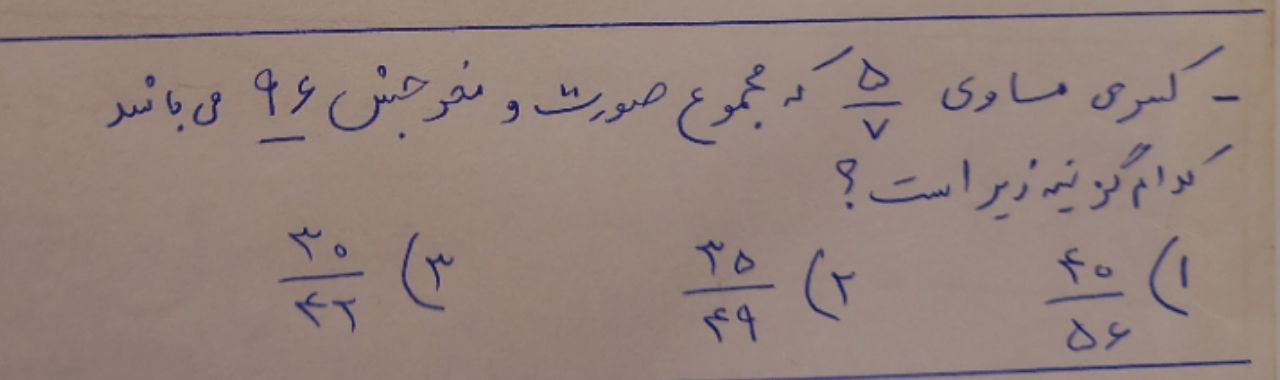 - کسری مساوی ۵/۷ که مجموع صورت و مخرجش ۹۶ می‌باشد
کدام گزینه زیر است؟
۱) ۴۰/۵۶ ۲) ۳۵/۴۹ ۳) ۳۰/۴۲